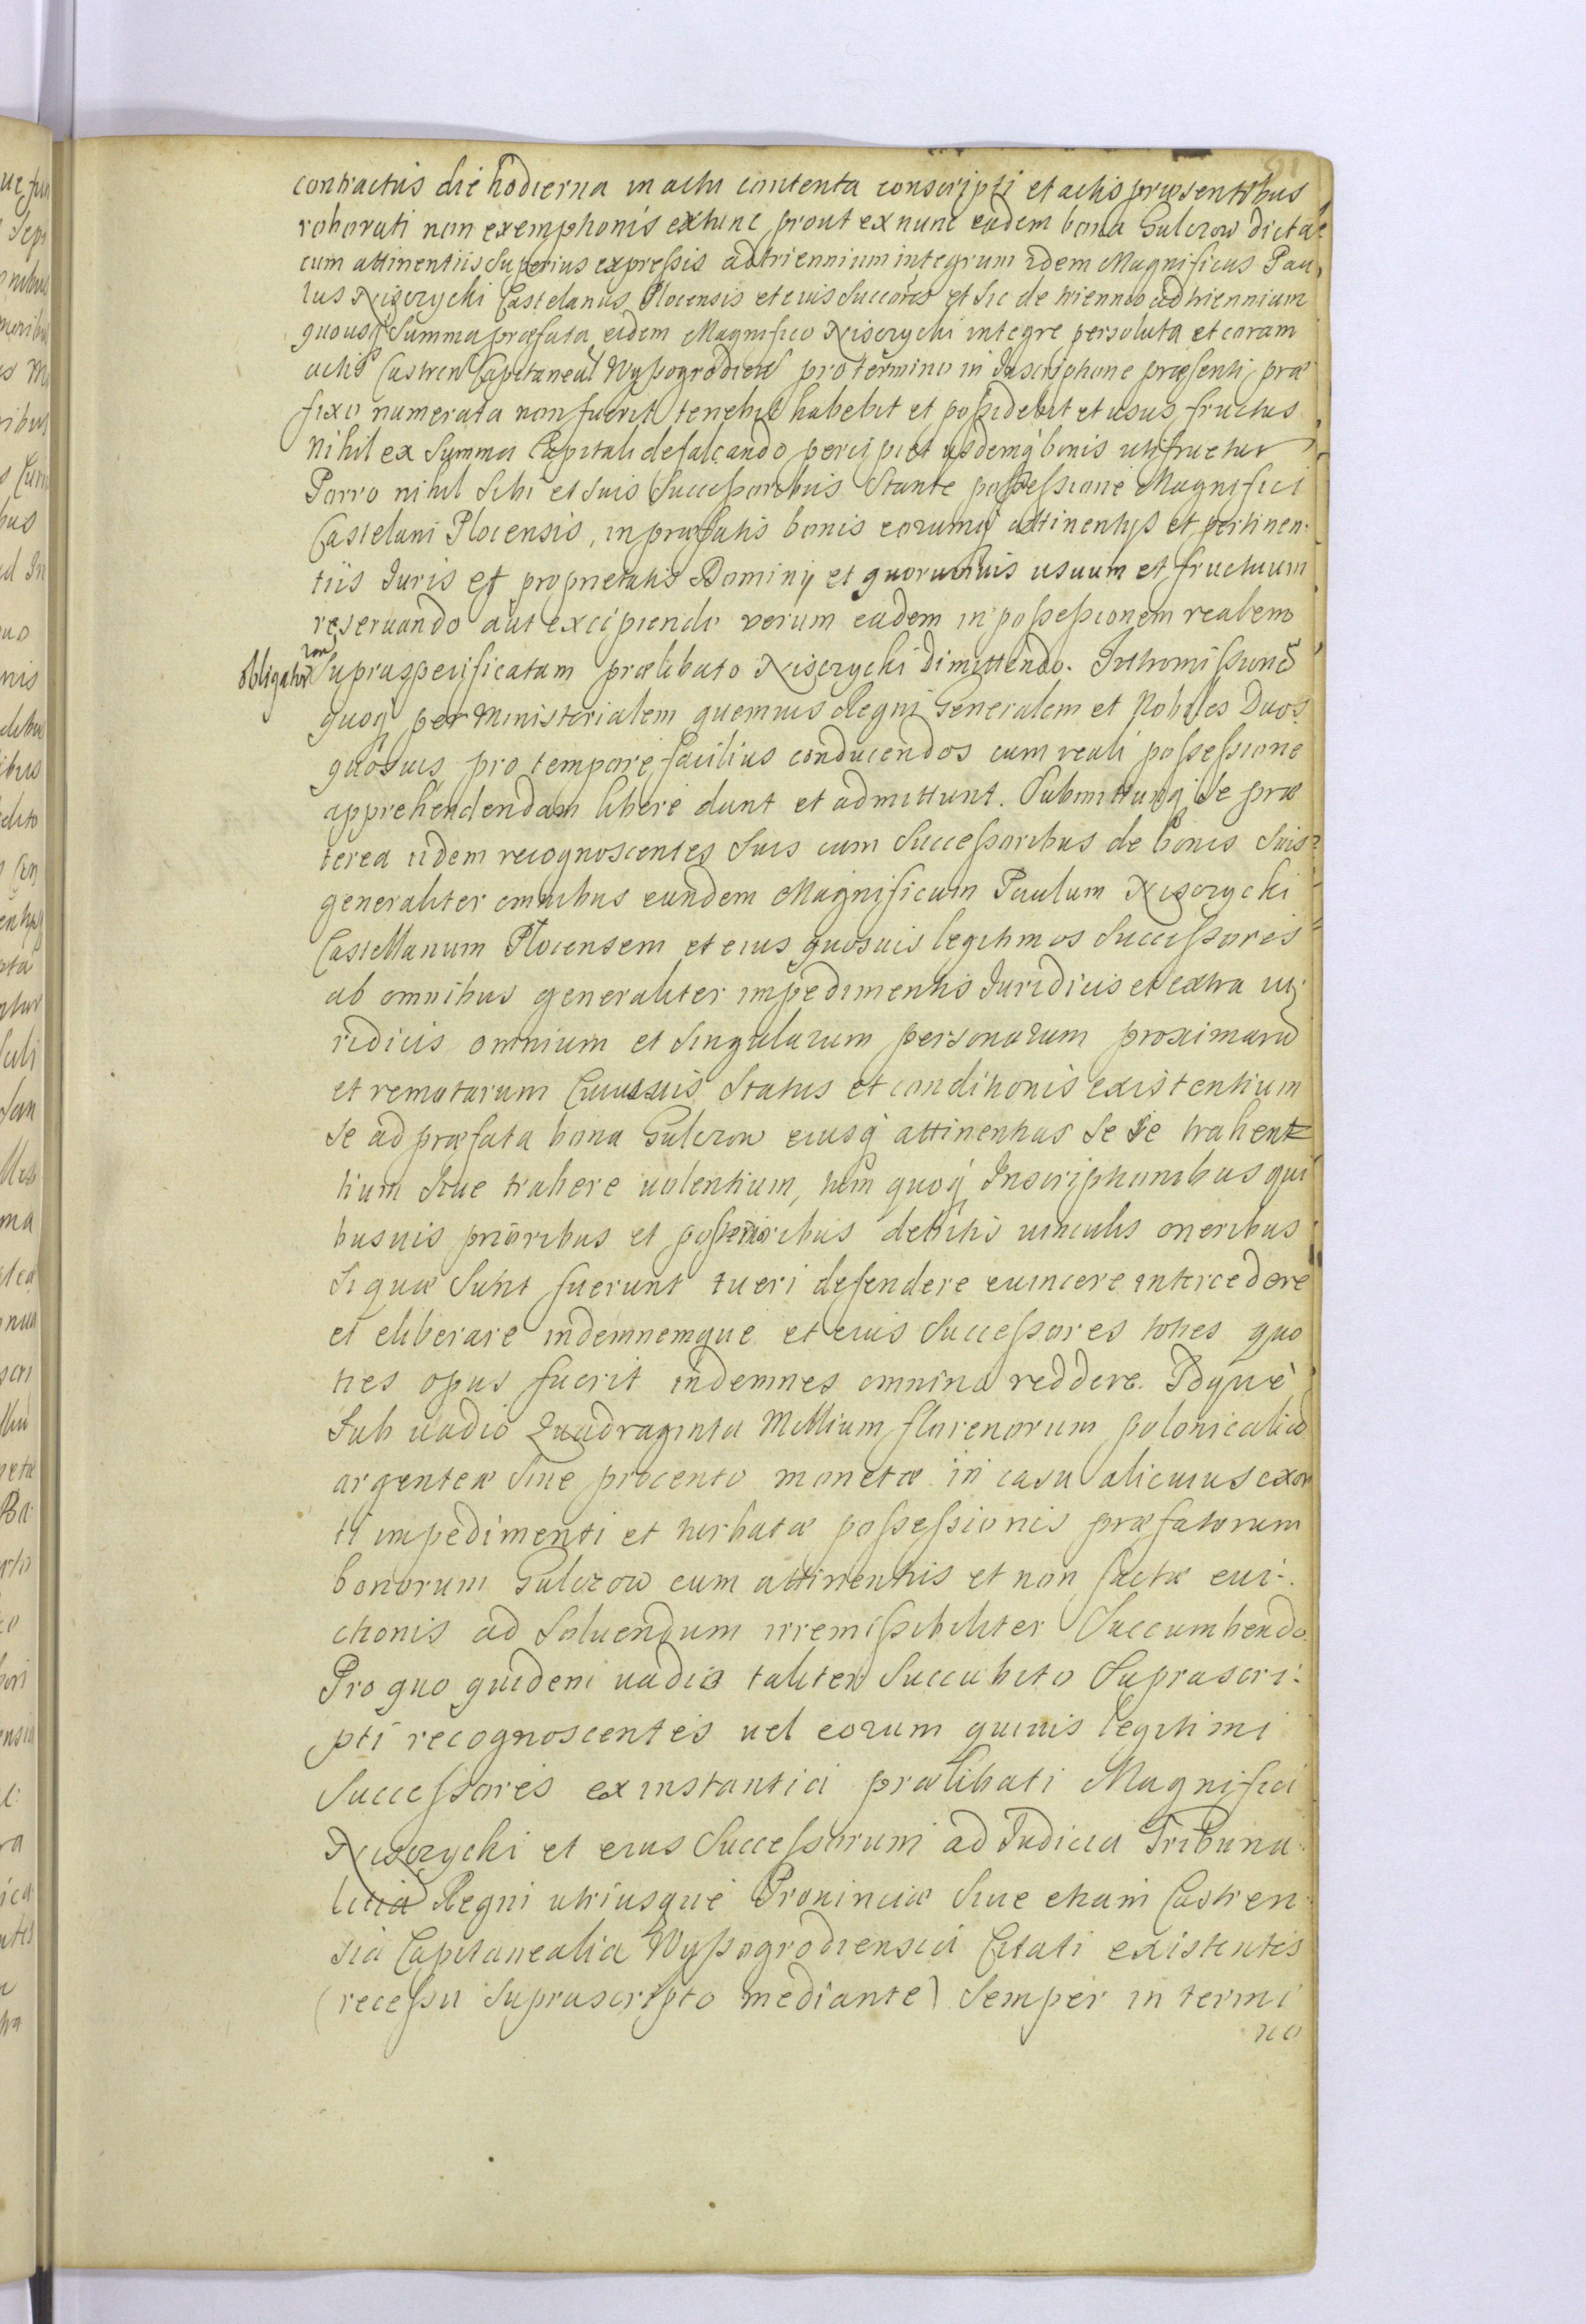 contractus die hodierna in actu contenta conscripti et actis præsentibus
roborati non exemptionis extunc prout ex nunc eadem bona Gulczow dicta
cum attinentiis Superius expressis ad triennium integrum idem Magnificus Pau
lus Niszczycki Castelanus Plocensis et eius Succores et Sic de triennio ad triennium
quousq Summa præfata eidem Magnifico Niszczycki integre persoluta et coram
actis Castren Capitaneal Wyssogrodien pro termino in Inscriptione præsenti præ
fixo numerata non fuerit tenebit habebit et possidebit et usus fructus
nihil ex Summa Capitali defalcando percipiet ijsdemq bonis utifruetur
Porro nihil Sibi et Suis Successoribus Stante possessione Magnifici
Castelani Plocensis, in præfatis bonis eorumq attinentijs et pertinen-
tiis Iuris et proprietatis Dominij et quorumvis usuum et fructuum
reservando aut excipiendo verum eadem in possessionem realem
obligator Supraspecificatam prælibato Niszczycki dimittendo. Intromissione
quoq per Ministerialem quemuis Regni Generalem et Nobiles Duos
quosuis pro tempore facilius conducendos cum reali possessione
apprehendendam libere dant et admittunt. Submittuntq Se præ
terea iidem recognoscentes Suis cum Successoribus de bonis Suis
generaliter omnibus eundem Magnificum Paulum Niszczycki
Castellanum Plocensem et eius quosuis legitimos Successores
ab omnibus generaliter impedimentis Iuridicis et extra iu
ridicis omnium et Singularum personarum proximaru
et remotarum Cuiusuis Status et conditionis existentium
Se ad præfata bona Gulczow eiusq attinentias Se Se trahent
tium Siue trahere uolentium, tum quoq Inscriptionibus qui
busuis prioribus et posterioribus debitis uinculis oneribus
Si quæ Sunt fuerunt tueri defendere euincere intercedere
et eliberare indemnemque et eius Successores toties quo
ties opus fuerit indemnes omnino reddere. Idque
Sub uadio Quadraginta Millium florenorum polonicaliu
argenteæ Sine procento monetæ in casu alicuius exor
ti impedimenti et turbatæ possessionis præfatorum
bonorum Gulczow cum attinentiis et non factæ eui-
ctionis ad Soluendum irremissibiliter Succumbendo
Pro quo quidem uadio taliter Succubito Suprascri-
pti recognoscentes uel eorum quiuis legitimi
Successores ex instantia prælibati Magnifici
Niszczycki et eius Successorum ad Iudicia Tribuna-
litia Regni utriusque Prouinciæ Siue etiam Castren
sia Capitanealia Wyssogrodiensia Citati existentes
(recessu Suprascripto mediante) Semper in termi
no